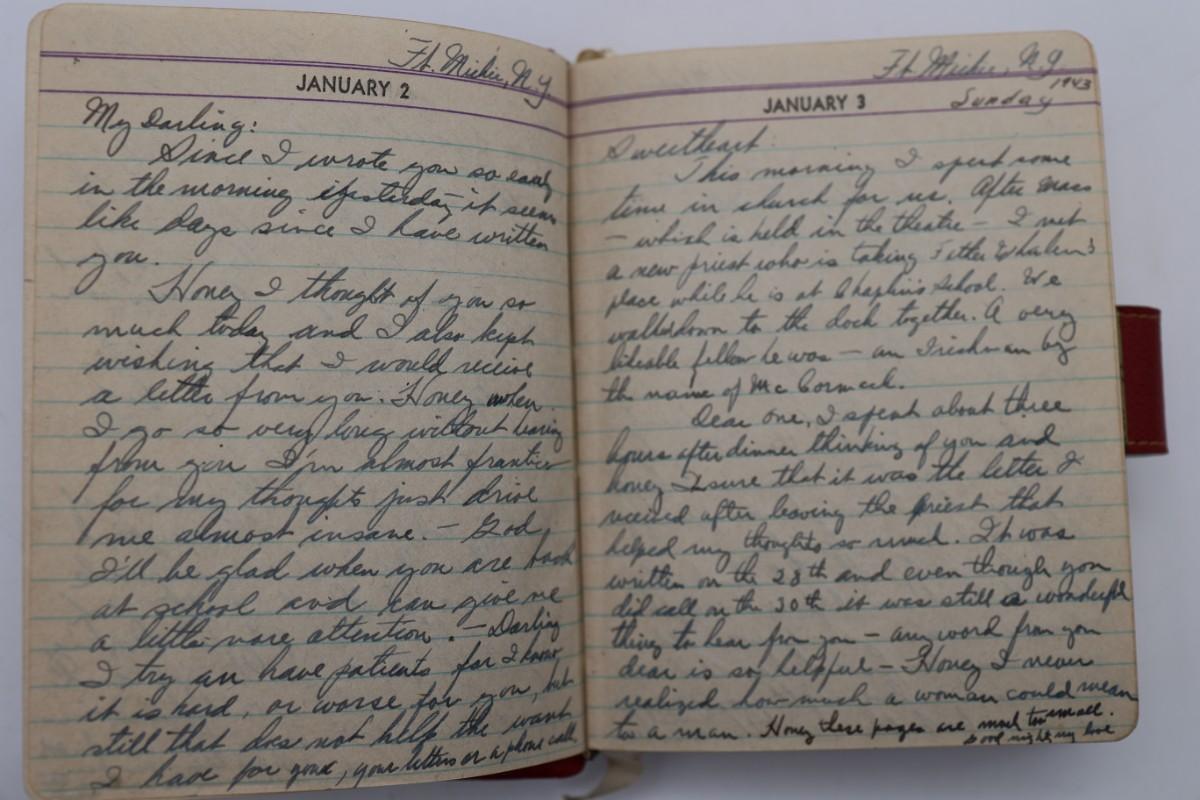 Ft. Michie, N.Y.
JANUARY 2
My Darling:
Since I wrote you so early
in the morning yesterday it seems
like days since I have written
you.
Honey I thought of you so
much today and I also kept
wishing that I would receive
a letter from you. Honey when
I go so very long without hearing
from you I'm almost frantic
for my thoughts just drive
me almost insane. — God
I'll be glad when you are back
at school and can give me
a little more attention. — Darling
I try an have patients for I know
it is hard, or worse for you, but
still that does not help the want
I have for you, your letters or a phone call
Ft Michie, N.Y.
JANUARY 3
Sunday 1943
Sweetheart
This morning I spent some
time in church for us. After mass
— which is held in the theatre — I met
a new priest who is taking Father Whalen's
place while he is at Chaplin's School. We
walked down to the dock together. A very
likeable fellow he was — an Irishman by
the name of McCormack.
Dear one, I spent about three
hours after dinner thinking of you and
honey I sure that it was the letter I
received after leaving the priest that
helped my thoughts so much. It was
written on the 28th and even though you
did call on the 30th it was still a wonderful
thing to hear from you — any word from you
dear is so helpful — Honey I never
realized how much a woman could mean
to a man. Honey these pages are much too small.
Good night my love